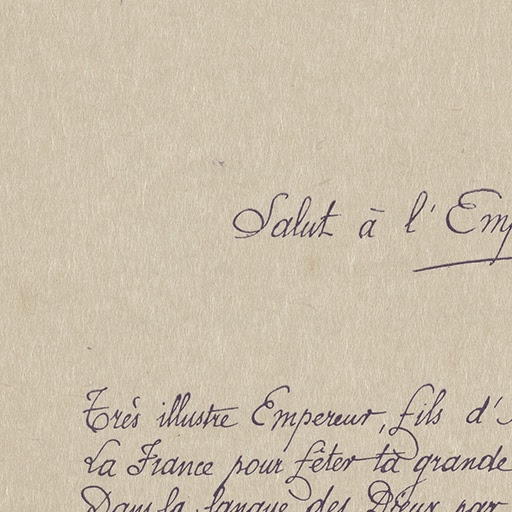 Salut à l'Emp
Très illustre Empereur, fils d'
La France pour fêter ta grande
Dans la langue des Dieux par